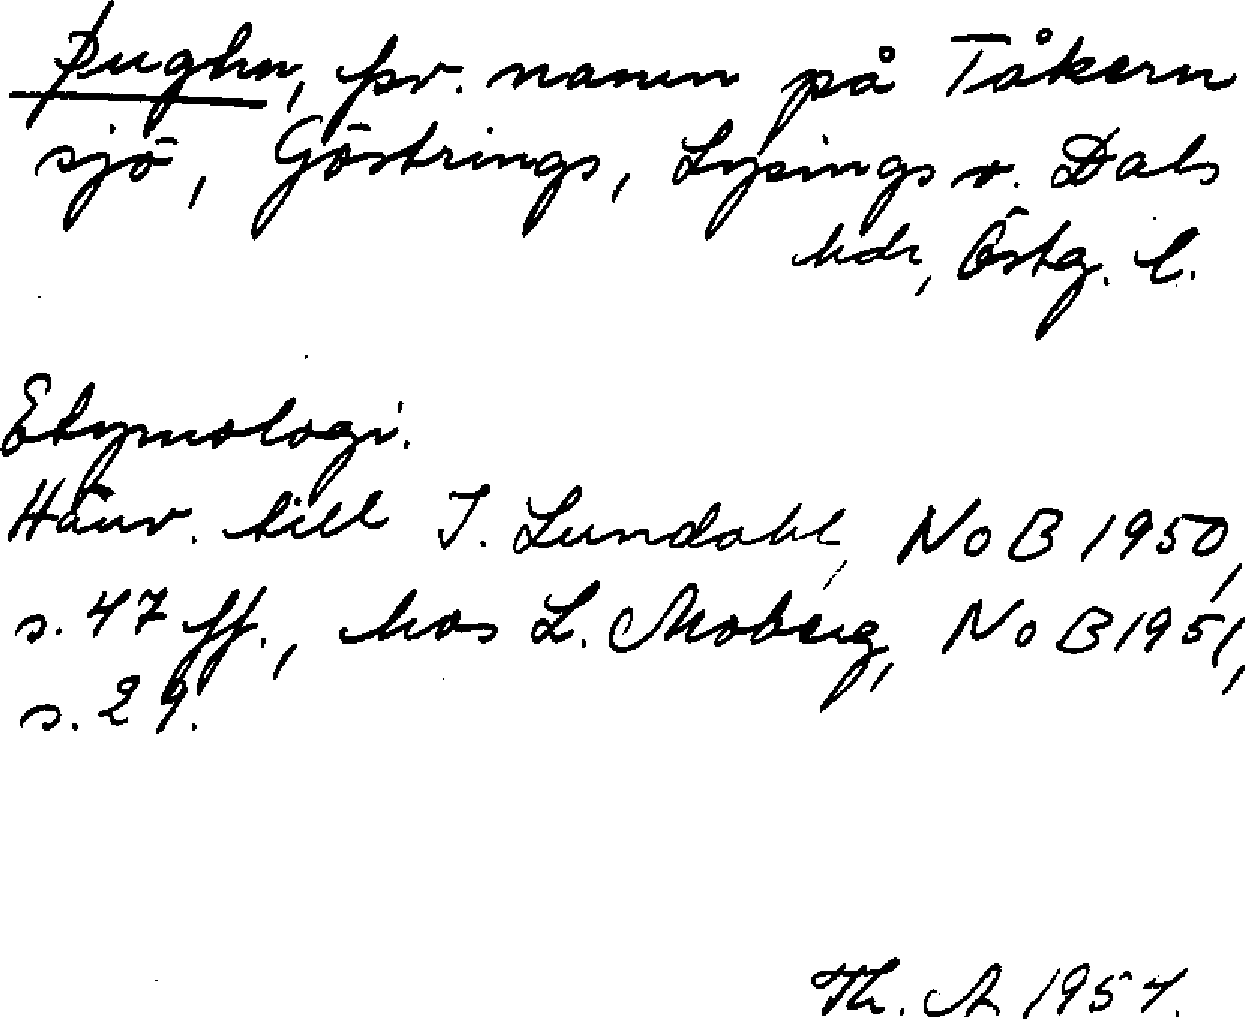 Þughn, fsv. namn på Tåkern
sjö, Göstrings, Lysings o. Dals
hdr, Östg. l.
Etymologi.
Hänv. till I. Lundahl, NoB 1950,
s. 47 ff., hos L. Moberg, NoB 1951,
s. 29.
Th. A 1954.